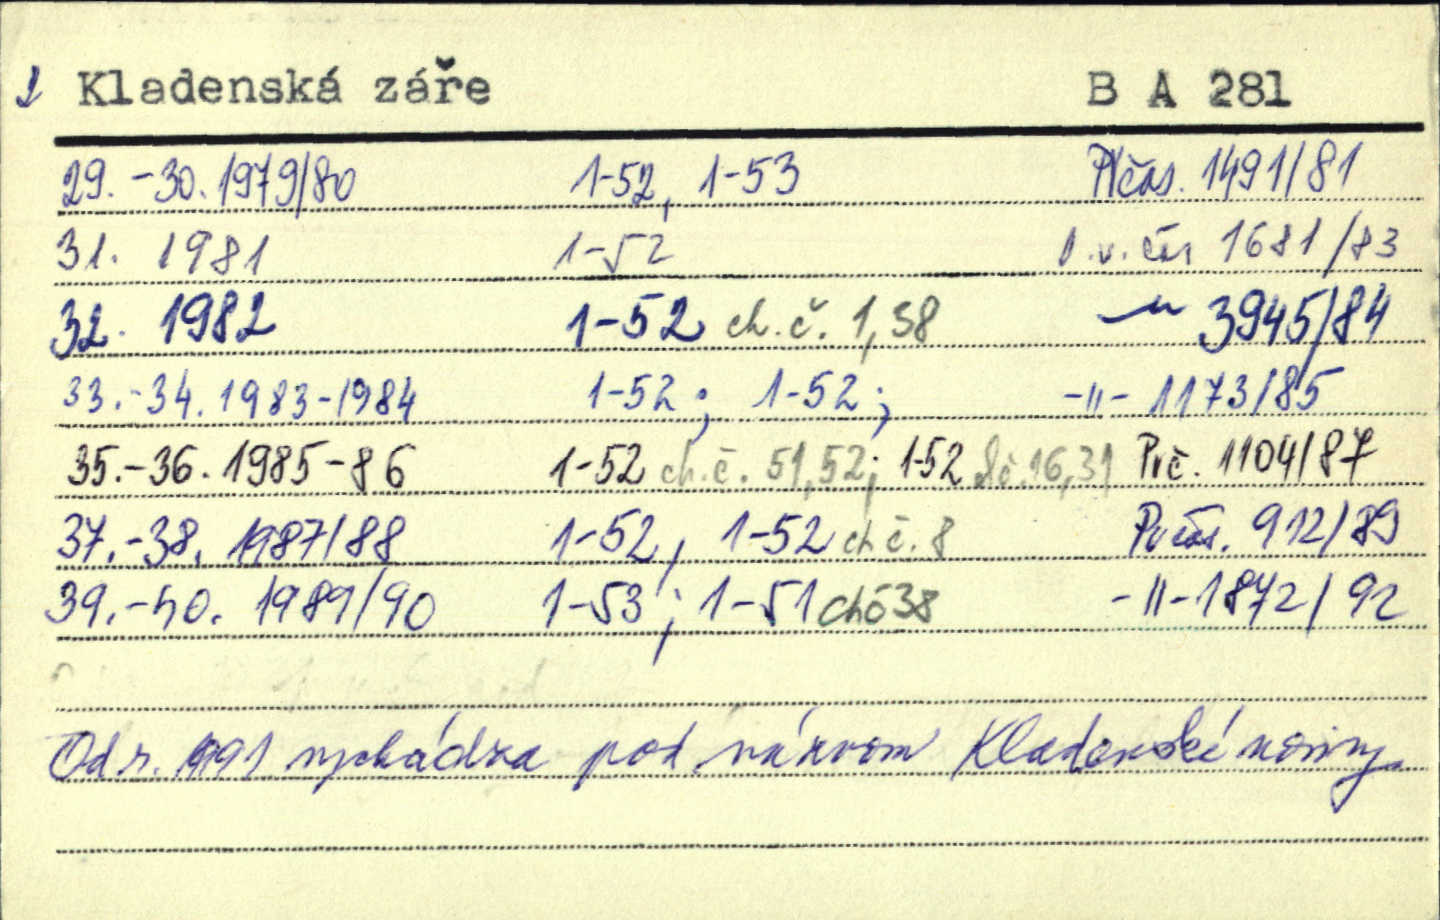 2 Kladenská záře B A 281
29.-30. 1979/80 1-52, 1-53 Přčas. 1491/81
31. 1981 1-52 1681/83
32. 1982 1-52 ch.č. 1, 38 -"- 3945/84
33.-34. 1983-1984 1-52; 1-52; -"- 1173/85
35.-36. 1985-86 1-52 ch.č. 51, 52; 1-52 16, 31 Prč. 1104/87
37.-38. 1987/88 1-52, 1-52 ch č. 8 Prčas. 912/89
39.-40. 1989/90 1-53; 1-51 chč 38 -"- 1872/92
Od r. 1991 vychádza pod názvom Kladenské noviny